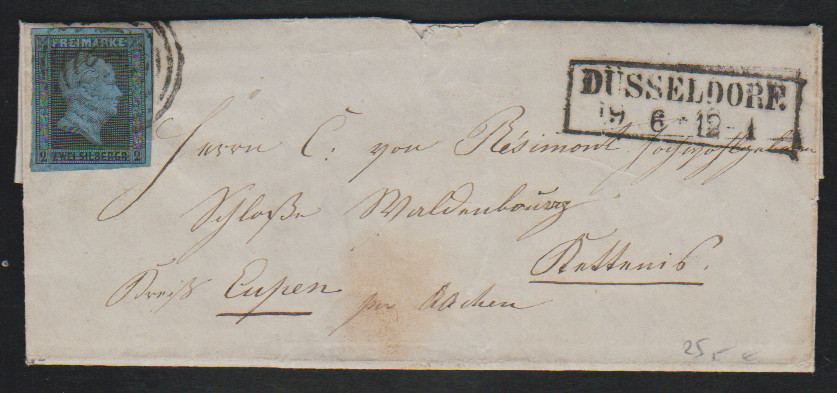 FREIMARKE
2 ZWEI SILBERGR. 2
DÜSSELDORF.
19 6 12-1
Herrn C. von Résimont, Hochwohlgeboren
Schloße Waldenbourg
Kettenis.
Kreiß Eupen per Aachen
25,- €